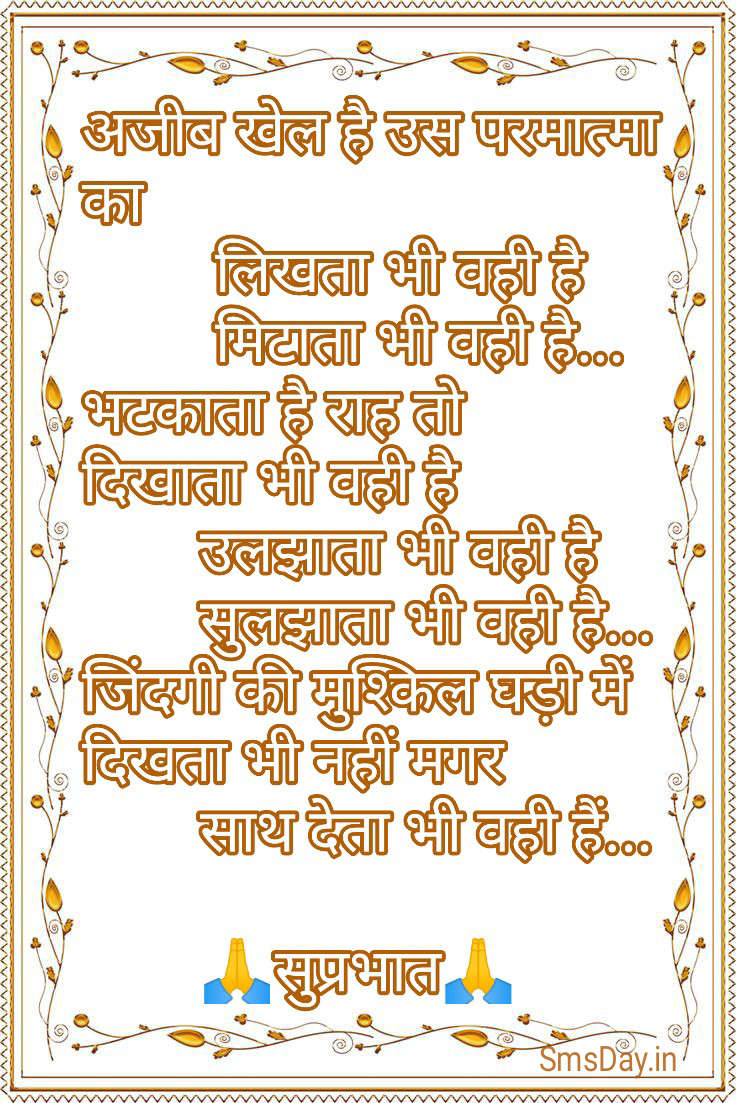 अजीब खेल है उस परमात्मा
का
लिखता भी वही है
मिटाता भी वही है...
भटकाता है राह तो
दिखाता भी वही है
उलझाता भी वही है
सुलझाता भी वही है...
जिंदगी की मुश्किल घड़ी में
दिखता भी नहीं मगर
साथ देता भी वही हैं...
🙏सुप्रभात🙏
SmsDay.in